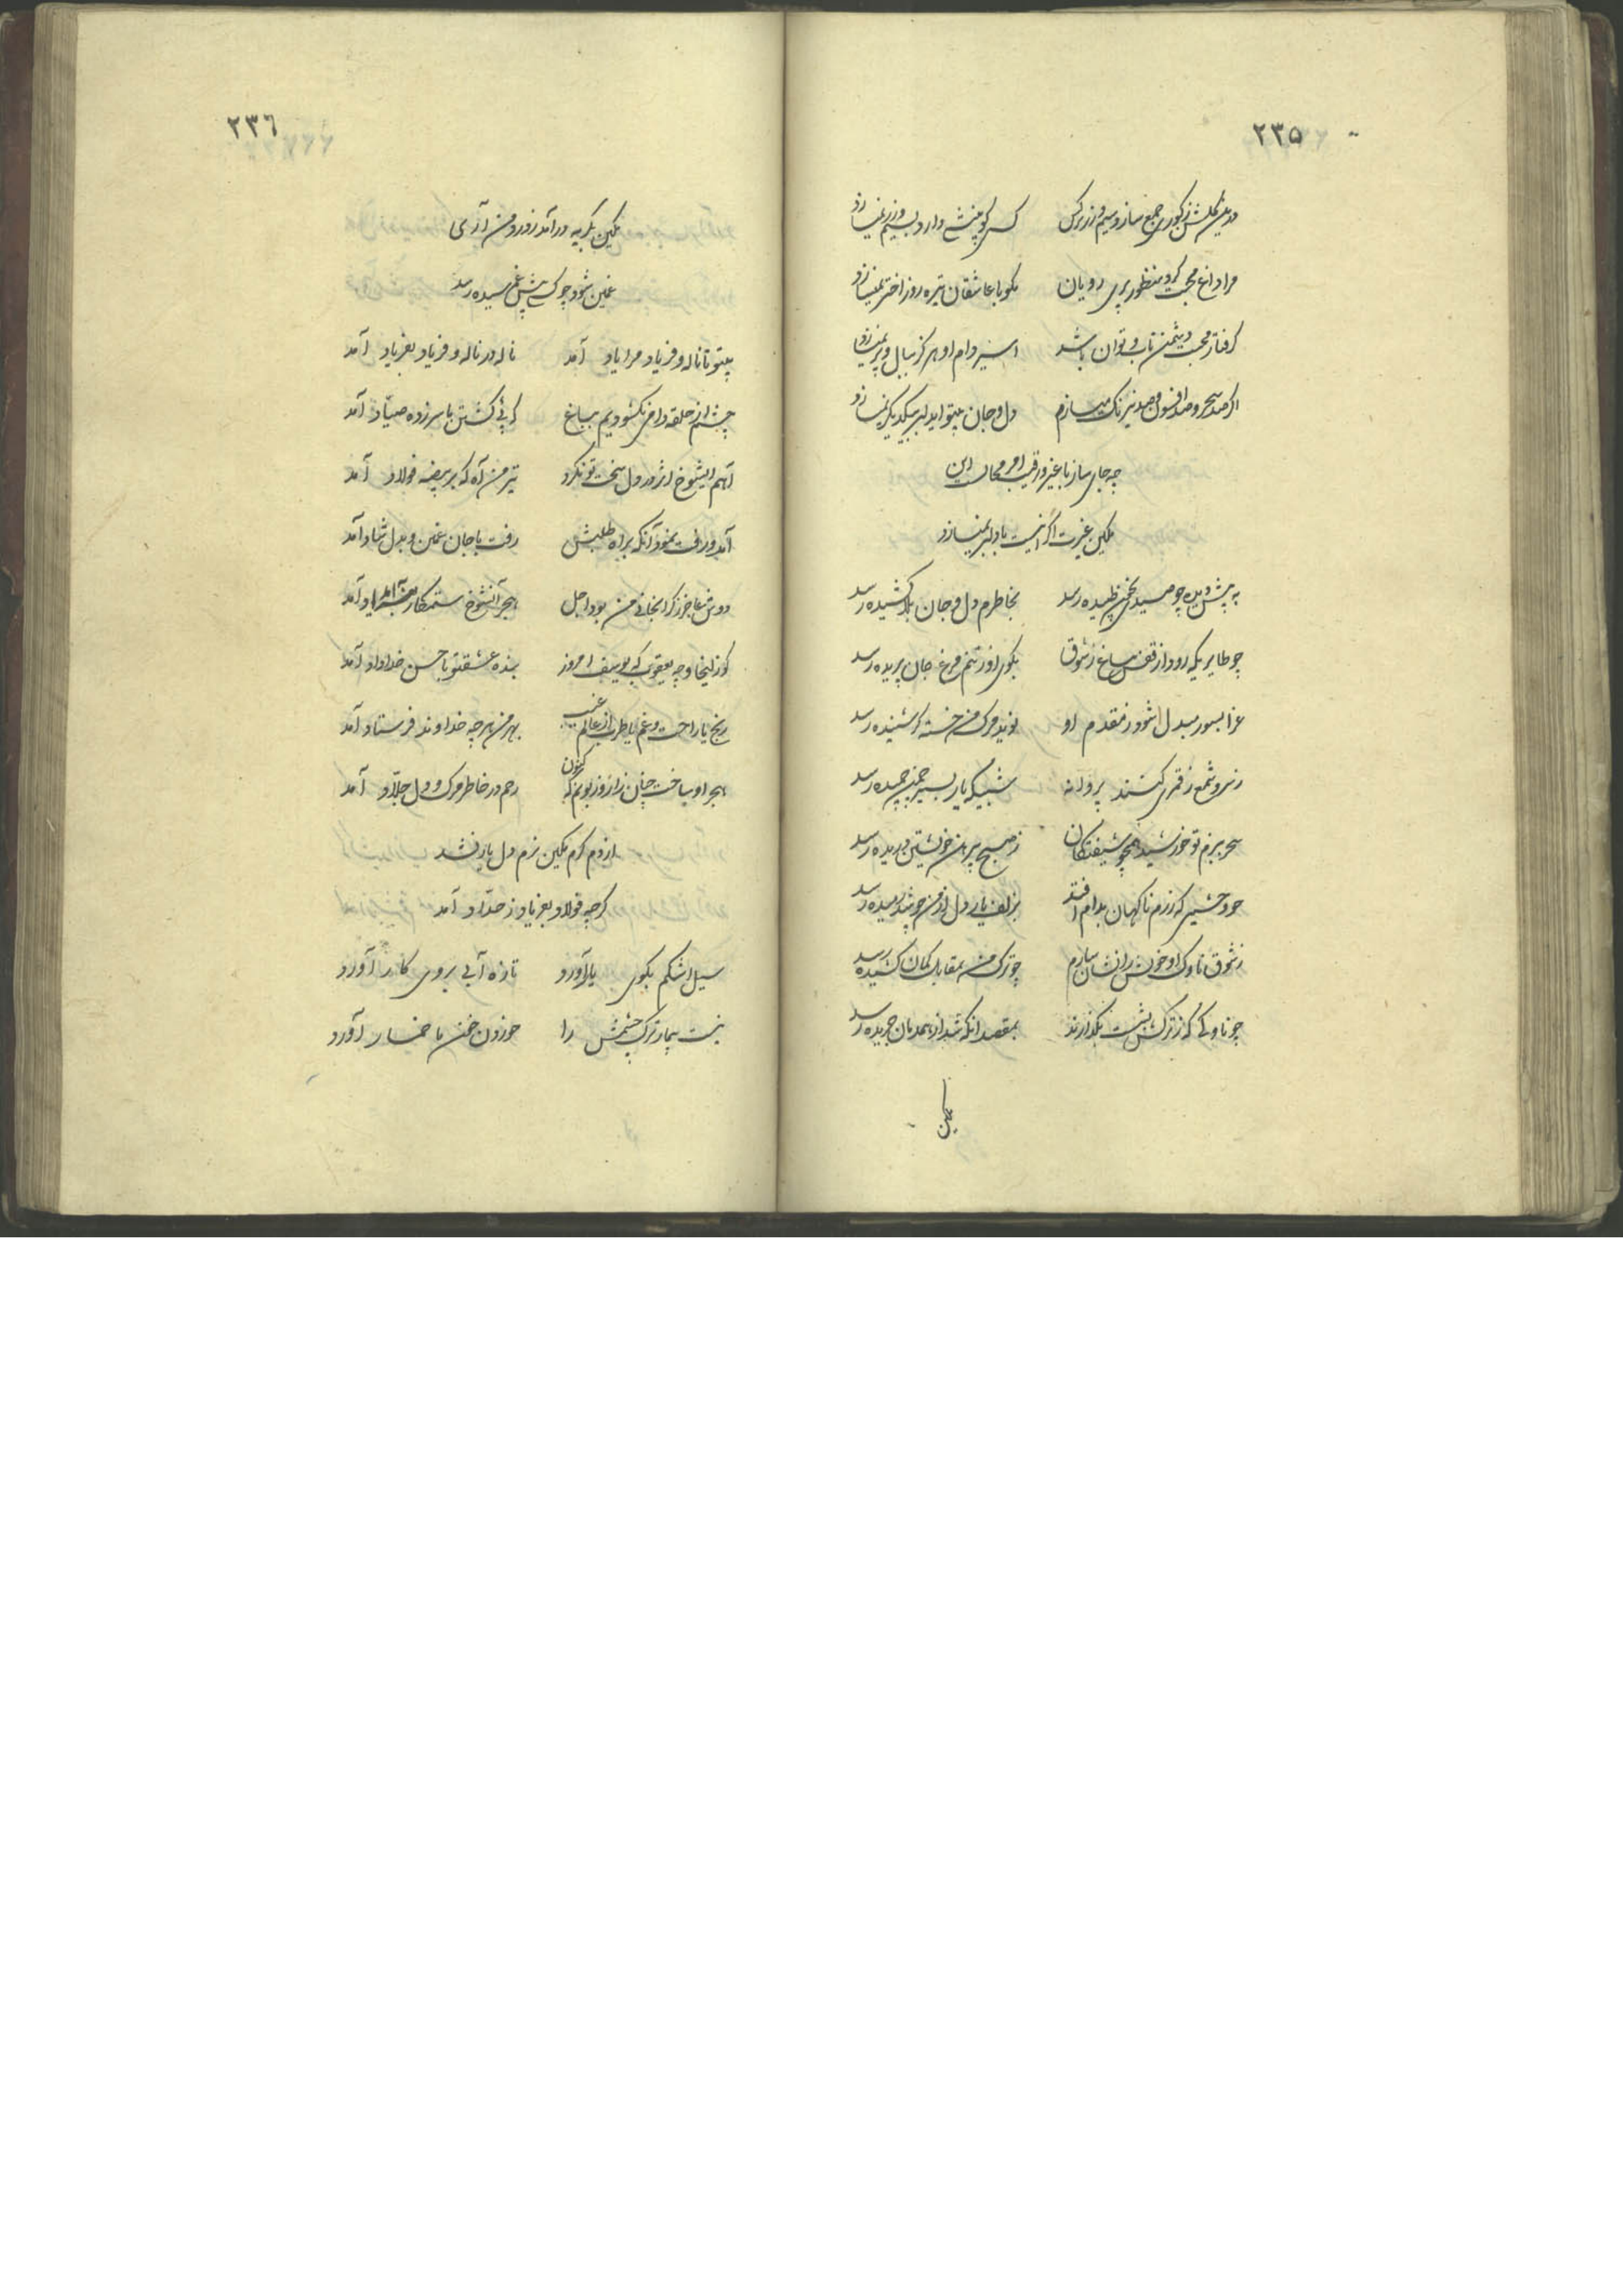 ۲۳۵
درین گلشن ز کوری جمع سازد سیم و زر نرگس کسی کو بینشی دارد بسیم و زر نمیسازد
مرا داغ محبت کرد منظور پری رویان مگو با عاشقان تیره روز اختر نمیسازد
گرفتار محبت دشمن تاب و توان باشد اسیر دام او هرگز ببال و پر نمیسازد
اگر صد سحر و صد افسون و صد نیرنگ میسازم دل و جان بیتو ای دلبر بیکدیگر نمیسازد
چه جای ساز با غیر و رقیب امر محال است این
غمگین غیرت اگر اینست با دلبر نمیسازد
به پیش دیده چو صیدی بخون طپیده رسد بخاطرم دل و جان بلا کشیده رسد
چو طایریکه رود از قفس بباغ ز شوق بکوی او ز تنم مرغ جان پریده رسد
عزا بسور مبدل شود ز مقدم او نوید مرگ من خسته گر شنیده رسد
ز سرو شمع ز قمری کنند پروانه شبیکه یار بسیر چمن چمیده رسد
سحر ببزم تو خورشید همچو شیفتگان ز صبح پیرهن خویشتن دریده رسد
چو وحشیی که ز رم ناگهان بدام افتد بزلف یار دل از من چو شد رمیده رسد
ز شوق ناوک او خویش را نشان سازم چو ترک من بمقابل کمان کشیده رسد
چو ناوکی که ز ترکش بشست بگذارند بمقصد آنکه شد از همدمان جریده رسد
غمگین
۲۳۶
غمگین بگریه درآمد ز درد من آری
غمین شود چو کسی پیش غم رسیده رسد
بیتو تا ناله و فریاد مرا یاد آمد ناله در ناله و فریاد بفریاد آمد
چشم از حلقه دامی نگشودیم بباغ کز پی کشتن ما سر زده صیاد آمد
آهم ایشوخ اثر در دل سخت تو نکرد تیر من آه که بر بیضه فولاد آمد
آمد و رفت نمود آنکه براه طلبش رفت با جان غمین و بدل شاد آمد
دوش عاجز ز گرانجانی من بود اجل هجر آنشوخ ستمکار بامداد آمد
کو زلیخا و چه یعقوب که یوسف امروز بنده عشقتو با حسن خداداد آمد
رنج یا راحت و غم یا طرب از عالم غیب بهر من هر چه خداوند فرستاد آمد
هجر او ساخت چنان زار و زبونم که کنون رحم در خاطر مرگ و دل جلاد آمد
از دم گرم غمگین نرم دل یار نشد
گرچه فولاد بفریاد ز حداد آمد
سیل اشکم بکوی یار آورد تازه آبی بروی کار آورد
نیست بیمار ترک چشمش را خوردن خون ما خمار آورد